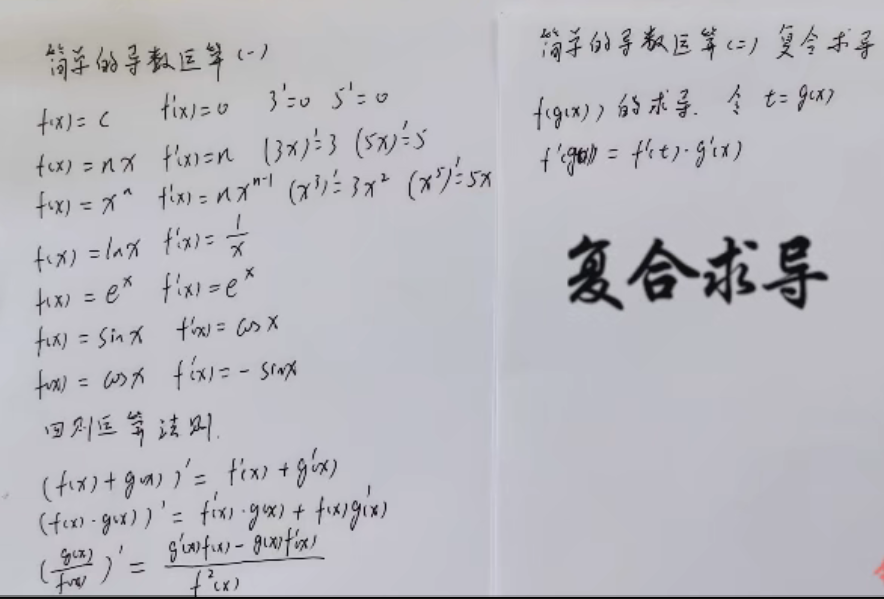 简单的导数运算(一)
f(x) = c f'(x) = 0 3' = 0 5' = 0
f(x) = nx f'(x) = n (3x)' = 3 (5x)' = 5
f(x) = xⁿ f'(x) = nxⁿ⁻¹ (x³)' = 3x² (x⁵)' = 5x
f(x) = lnx f'(x) = 1/x
f(x) = eˣ f'(x) = eˣ
f(x) = sinx f'(x) = cosx
f(x) = cosx f'(x) = -sinx
四则运算法则.
(f(x) + g(x))' = f'(x) + g'(x)
(f(x)·g(x))' = f'(x)·g(x) + f(x)g'(x)
(g(x)/f(x))' = (g'(x)f(x) - g(x)f'(x))/f²(x)
简单的导数运算(二) 复合求导
f(g(x)) 的求导. 令 t = g(x)
f'(g(x)) = f'(t)·g'(x)
复合求导